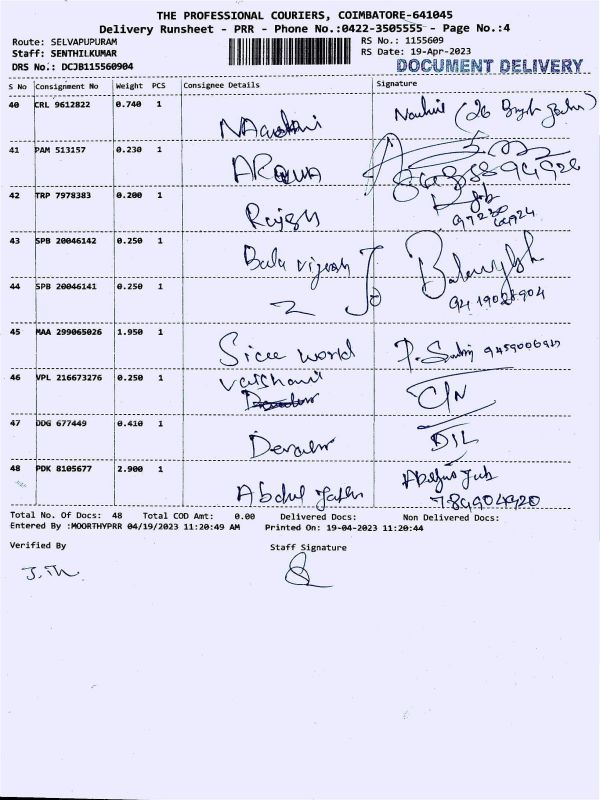 THE PROFESSIONAL COURIERS, COIMBATORE-641045
Delivery Runsheet - PRR - Phone No.:0422-3505555 - Page No.:4
Route: SELVAPUPURAM
RS No.: 1155609
Staff: SENTHILKUMAR
RS Date: 19-Apr-2023
DRS No.: DCJB115560904
DOCUMENT DELIVERY
S No Consignment No Weight PCS Consignee Details Signature
40 CRL 9612822 0.740 1
41 PAM 513157 0.230 1
42 TRP 7978383 0.200 1
Rajesh
43 SPB 20046142 0.250 1
Bala vignesh
44 SPB 20046141 0.250 1
45 MAA 299065026 1.950 1
world
46 VPL 216673276 0.250 1
C/N
47 DDG 677449 0.410 1
48 PDK 8105677 2.900 1
Abdul
Total No. Of Docs: 48 Total COD Amt: 0.00 Delivered Docs: Non Delivered Docs:
Entered By :MOORTHYPRR 04/19/2023 11:20:49 AM Printed On: 19-04-2023 11:20:44
Verified By Staff Signature